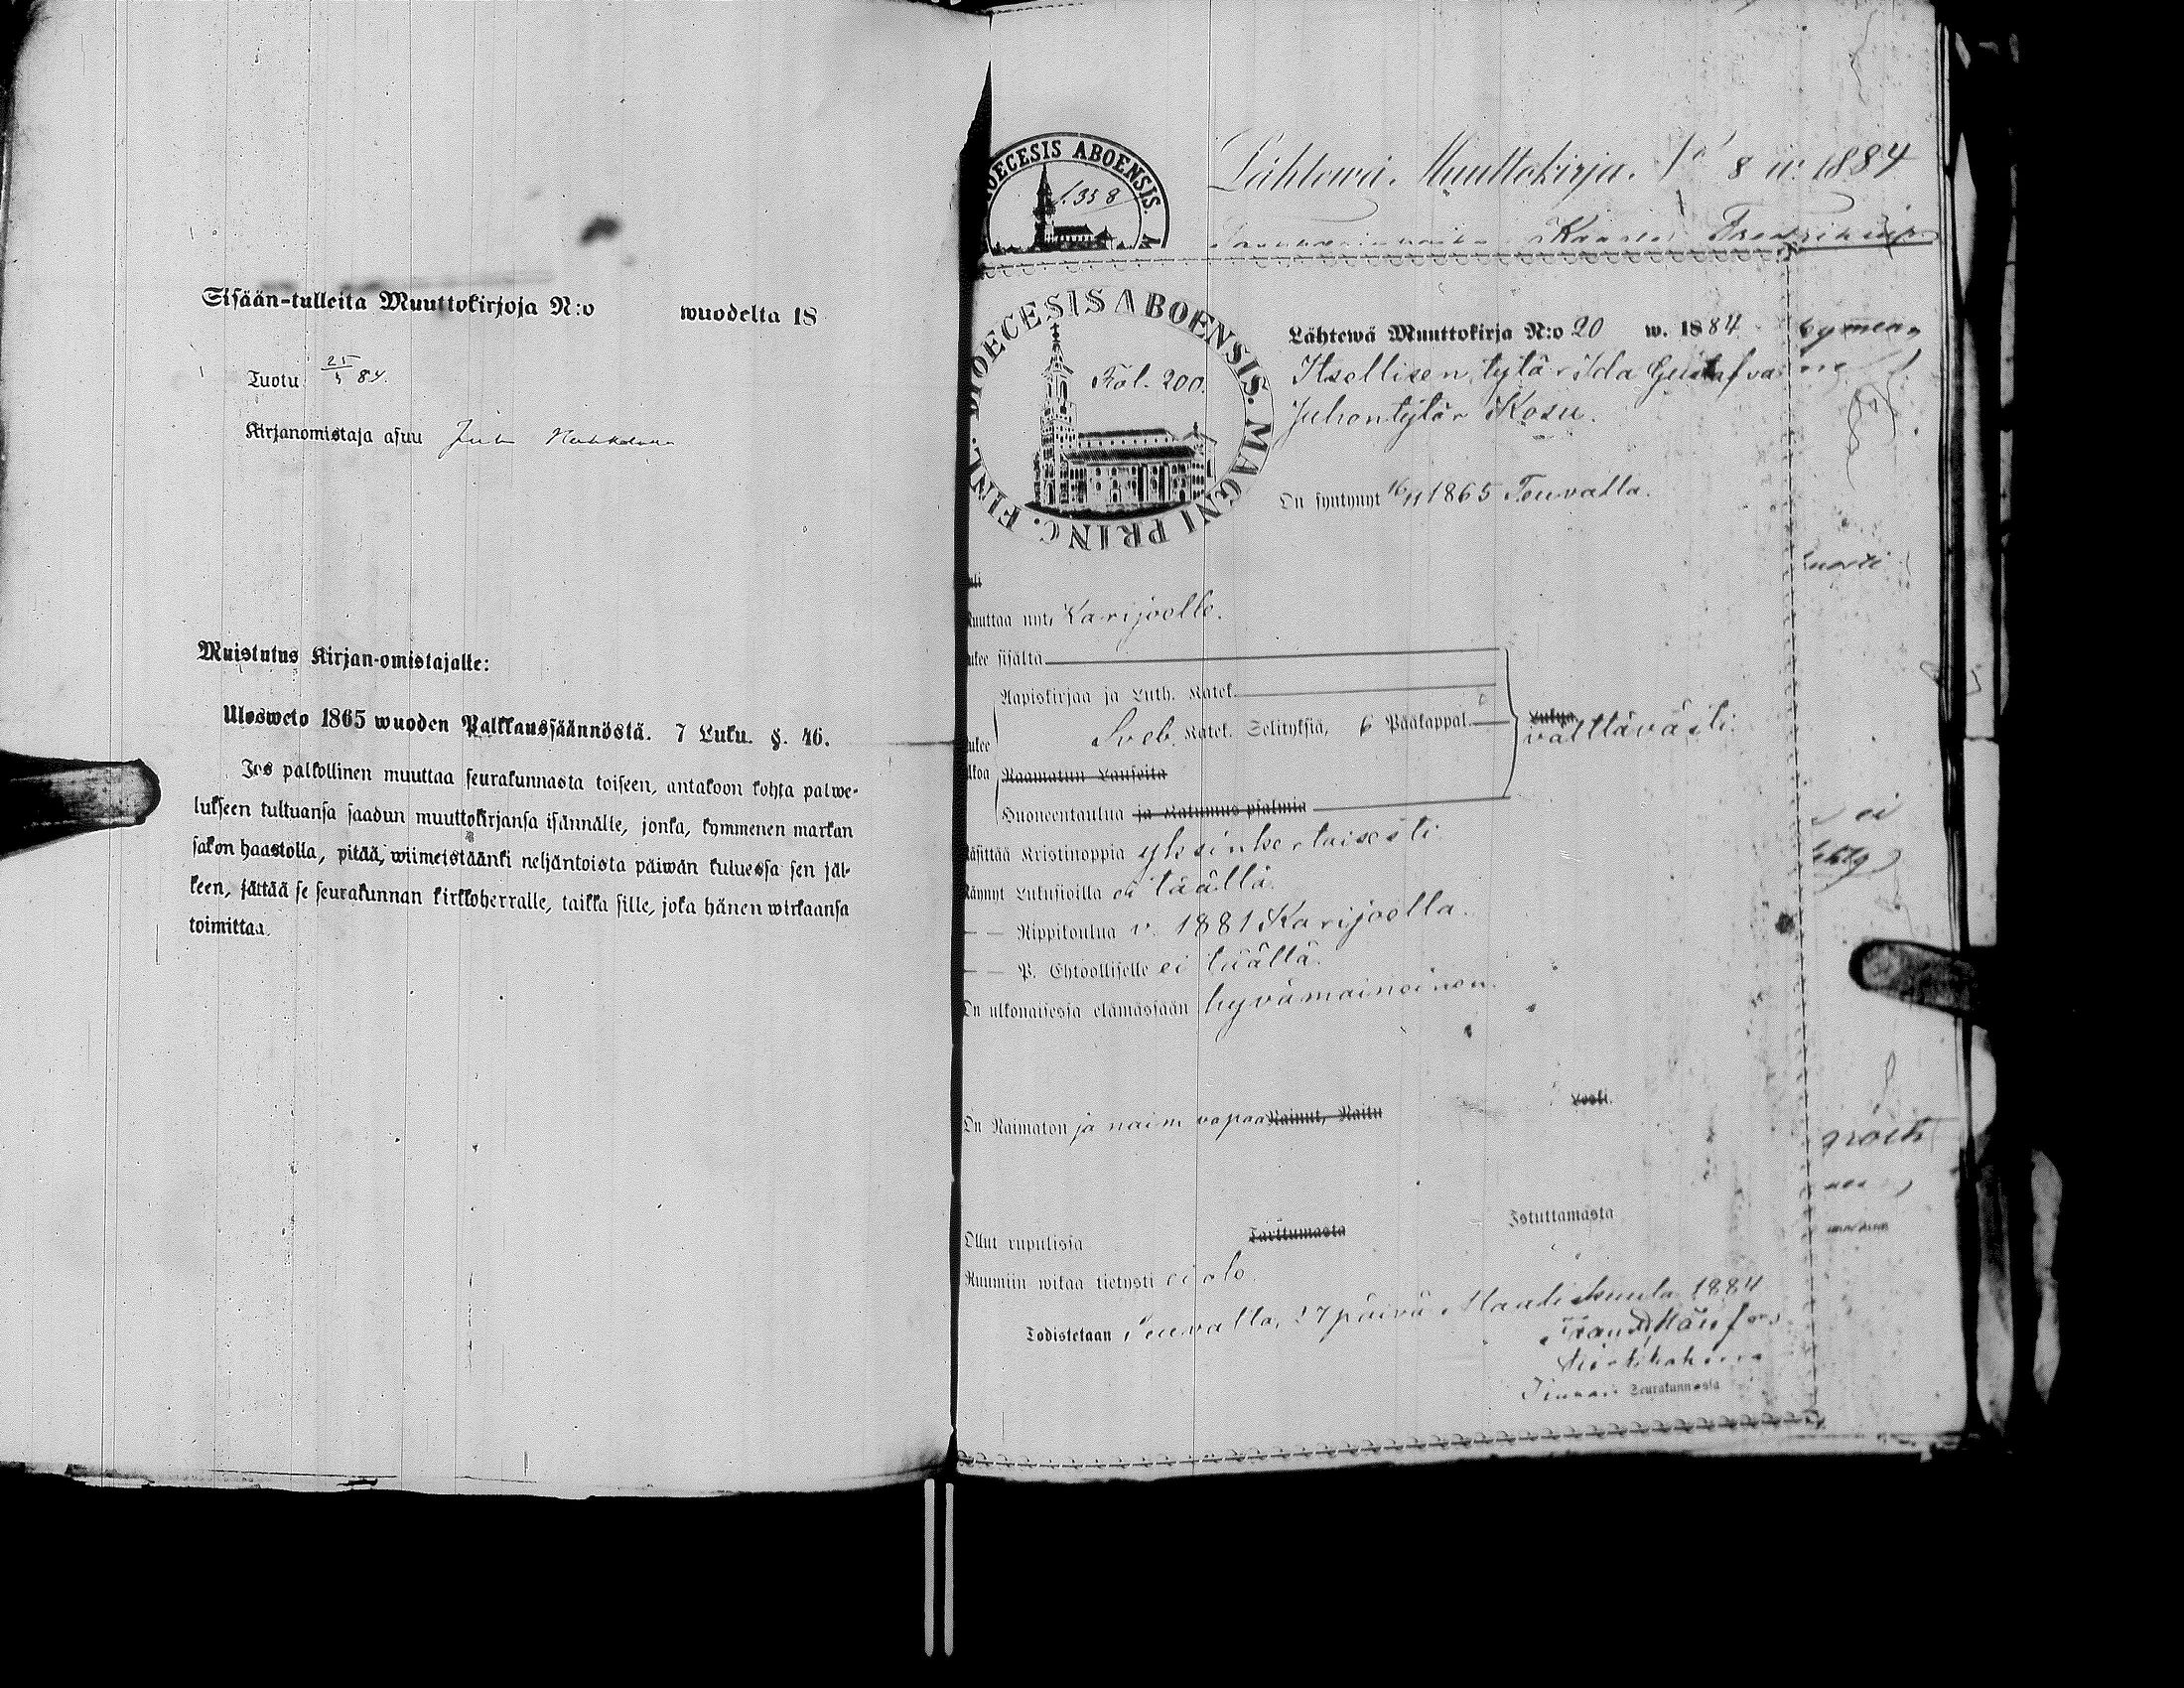 Sisään-tulleita Muuttokirjoja N:o wuodelta 18
Tuotu 25/3 84.
Kirjanomistaja asuu
Muistutus Kirjan-omistajalle:
Ulosweto 1865 wuoden Palkkaussäännöstä. 7 Luku. §. 46.
Jos palkollinen muuttaa seurakunnasta toiseen, antakoon kohta palwe-
lukseen tultuansa saadun muuttokirjansa isännälle, jonka, kymmenen markan
sakon haastolla, pitää, wiimeistäänki neljäntoista päiwän kuluessa sen jäl-
keen, jättää se seurakunnan kirkkoherralle, taikka sille, joka hänen wirkaansa
toimittaa.
DIOECESIS ABOENSIS. M
f. 358
Lähtewä Muuttokirja. No 8 w. 1884
DIOECESIS ABOENSIS. MAGNI PRINC. FINL.
Fol. 200.
Lähtewä Muuttokirja N:o 20 w. 1884
Itsellisen tytär Ida Gustafva
Juhontytär Kosu.
On syntynyt 16/11 1865 Teuvalla.
uli
uuttaa nyt, Karijoelle.
ukee sisältä
Aapiskirjaa ja Luth. Katek.
ukee Sveb. Katek. Selityksiä, 6 Pääkappal. Lukua välttävästi.
lkoa Raamatun Lauseita
Huoneentaulua ja Katumus-psalmia
äsittää Kristinoppia yksinkertaisesti
äynyt Lukusioilla ei täällä.
— — Rippikoulua v. 1881 Karijoella.
— — P. Ehtoolliselle ei täällä.
On ulkonaisessa elämässään hyvämaineinen.
On Naimaton ja naim vapaa Nainut, Naitu Leski.
Ollut rupulissa Tarttumasta Istuttamasta
Ruumiin wikaa tietysti ei olo.
Todistetaan Teuvalla, 27 päivä Maaliskuuta 1884
Seurakunnasta